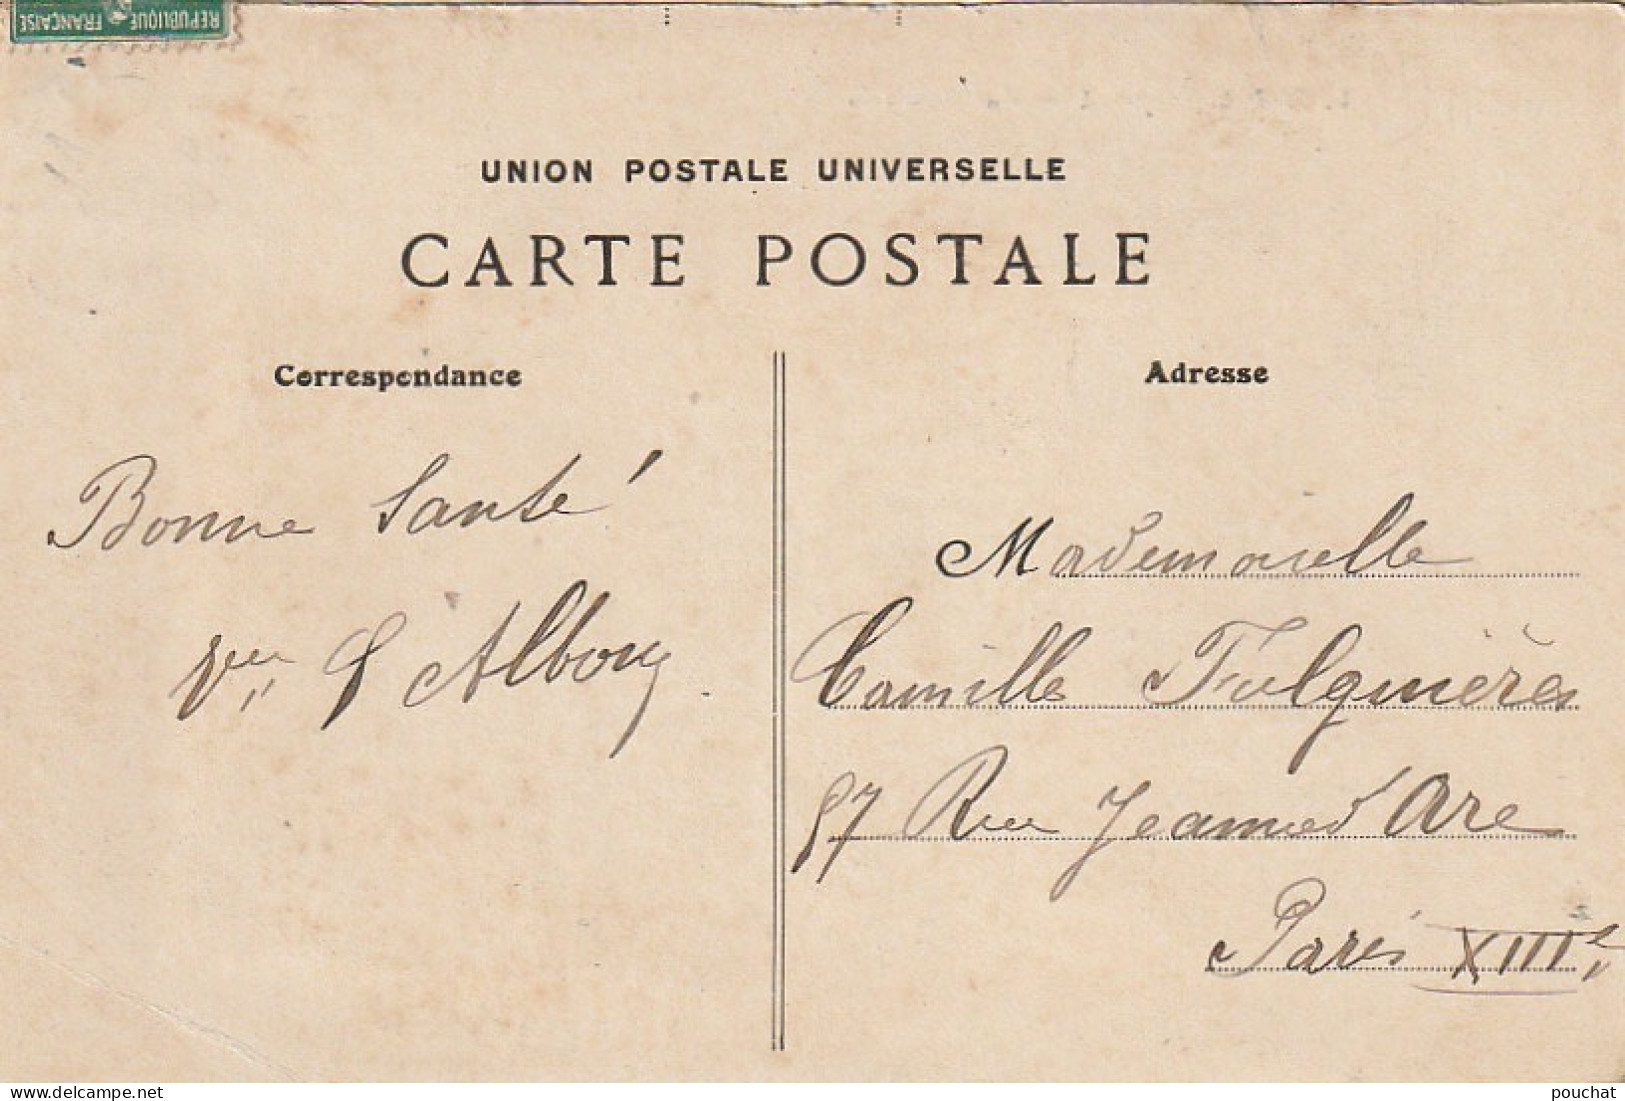 REPUBLIQUE FRANÇAISE
UNION POSTALE UNIVERSELLE
CARTE POSTALE
Correspondance
Adresse
Bonne Santé
Vve Albouy
Mademoiselle
Camille Fulguières
87 Rue Jeanne d'Arc
Paris XIIIe
pouchat